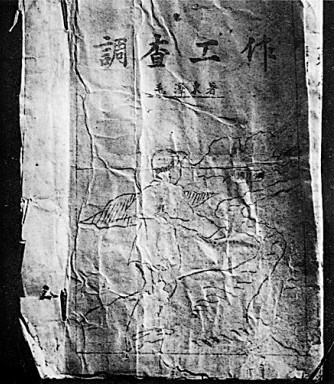 調查工作
毛澤東著